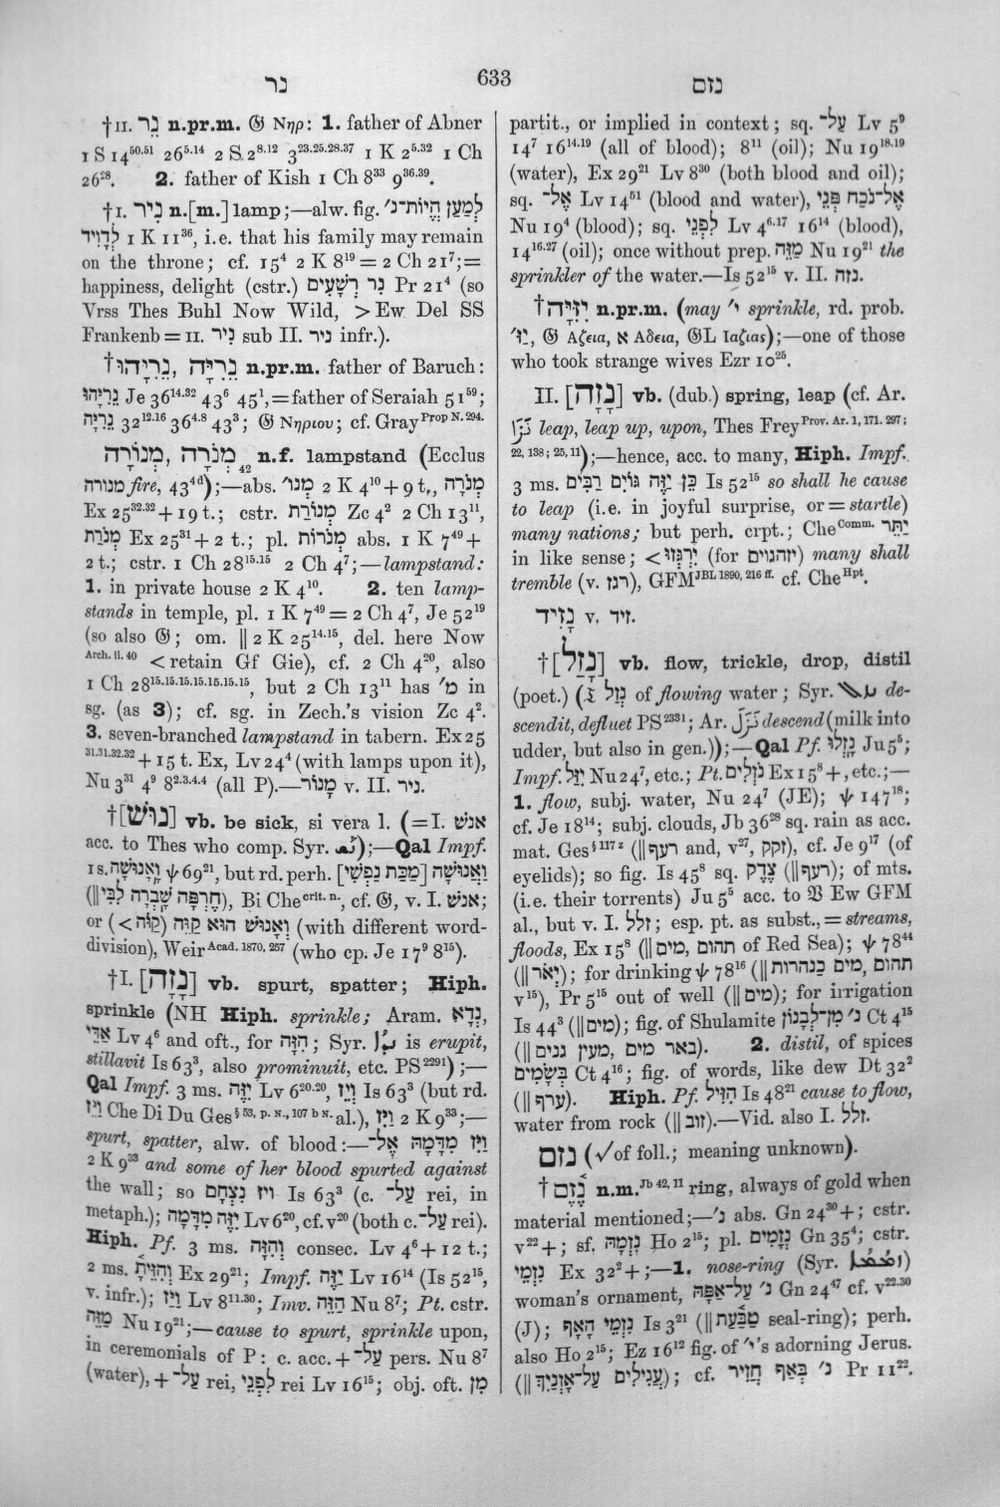 נר
633
נזם
†II. נֵר n.pr.m. 𝔊 Νηρ: 1. father of Abner
1 S 14⁵⁰·⁵¹ 26⁵·¹⁴ 2 S 2⁸·¹² 3²³·²⁵·²⁸·³⁷ 1 K 2⁵·³² 1 Ch
26²⁸. 2. father of Kish 1 Ch 8³³ 9³⁶·³⁹.
†I. נִיר n.[m.] lamp;—alw. fig. לְמַעַן הֱיוֹת־נ׳
לְדָוִיד 1 K 11³⁶, i.e. that his family may remain
on the throne; cf. 15⁴ 2 K 8¹⁹ = 2 Ch 21⁷; =
happiness, delight (cstr.) נִר רְשָׁעִים Pr 21⁴ (so
Vrss Thes Buhl Now Wild, > Ew Del SS
Frankenb = II. נִיר sub II. ניר infr.).
†נֵרִיָּה, נֵרִיָּהוּ n.pr.m. father of Baruch:
נֵרִיָּהוּ Je 36¹⁴·³² 43⁶ 45¹, = father of Seraiah 51⁵⁹;
נֵרִיָּה 32¹²·¹⁶ 36⁴·⁸ 43³; 𝔊 Νηριου; cf. Gray Prop N. 294.
מְנֹרָה, מְנוֹרָה n.f. lampstand (Ecclus
מנורה fire, 43⁴ᵈ);—abs. מְנוֹ׳ 2 K 4¹⁰ + 9 t., מְנֹרָה
Ex 25³²·³² + 19 t.; cstr. מְנוֹרַת Zc 4² 2 Ch 13¹¹,
מְנֹרַת Ex 25³¹ + 2 t.; pl. מְנֹרוֹת abs. 1 K 7⁴⁹ +
2 t.; cstr. 1 Ch 28¹⁵·¹⁵ 2 Ch 4⁷;—lampstand:
1. in private house 2 K 4¹⁰. 2. ten lamp-
stands in temple, pl. 1 K 7⁴⁹ = 2 Ch 4⁷, Je 52¹⁹
(so also 𝔊; om. ‖ 2 K 25¹⁴·¹⁵, del. here Now
Arch. ii. 40 < retain Gf Gie), cf. 2 Ch 4²⁰, also
1 Ch 28¹⁵·¹⁵·¹⁵·¹⁵·¹⁵·¹⁵·¹⁵, but 2 Ch 13¹¹ has מ׳ in
sg. (as 3); cf. sg. in Zech.'s vision Zc 4².
3. seven-branched lampstand in tabern. Ex 25
³¹·³¹·³²·³² + 15 t. Ex, Lv 24⁴ (with lamps upon it),
Nu 3³¹ 4⁹ 8²·³·⁴·⁴ (all P).—מָנוֹר v. II. ניר.
†[נוּשׁ] vb. be sick, si vera l. (= I. אנשׁ
acc. to Thes who comp. Syr.);—Qal Impf.
1 s. וָאָנוּשָׁה ψ 69²¹, but rd. perh. וַאֲנוּשָׁה [מַכַּת נַפְשִׁי]
(‖ חֶרְפָּה שָׁבְרָה לִבִּי), Bi Che crit. n., cf. 𝔊, v. I. אנשׁ;
or (< קַוֵּה) וְאָנוּשׁ הוּא קַוֵּה (with different word-
division), Weir Acad. 1870, 257 (who cp. Je 17⁹ 8¹⁵).
†I. [נָזָה] vb. spurt, spatter; Hiph.
sprinkle (NH Hiph. sprinkle; Aram. נְדָא,
אַדִּי Lv 4⁶ and oft., for הִזָּה; Syr. is erupit,
stillavit Is 63³, also prominuit, etc. PS ²²⁹¹);—
Qal Impf. 3 ms. יִזֶּה Lv 6²⁰·²⁰, וְיֵז Is 63³ (but rd.
וַיִּז Che Di Du Ges § 53, p. N., 107 b N. al.), וַיִּז 2 K 9³³;—
spurt, spatter, alw. of blood:—וַיִּז מִדָּמָהּ אֶל־
2 K 9³³ and some of her blood spurted against
the wall; so וְיֵז נִצְחָם Is 63³ (c. עַל־ rei, in
metaph.); יִזֶּה מִדָּמָהּ Lv 6²⁰, cf. v²⁰ (both c. עַל־ rei).
Hiph. Pf. 3 ms. וְהִזָּה consec. Lv 4⁶ + 12 t.;
2 ms. וְהִזֵּיתָ Ex 29²¹; Impf. יַזֶּה Lv 16¹⁴ (Is 52¹⁵,
v. infr.); וַיַּז Lv 8¹¹·³⁰; Imv. הַזֵּה Nu 8⁷; Pt. cstr.
מַזֵּה Nu 19²¹;—cause to spurt, sprinkle upon,
in ceremonials of P: c. acc. + עַל־ pers. Nu 8⁷
(water), + עַל־ rei, לִפְנֵי rei Lv 16¹⁵; obj. oft. מִן
partit., or implied in context; sq. עַל־ Lv 5⁹
14⁷ 16¹⁴·¹⁹ (all of blood); 8¹¹ (oil); Nu 19¹⁸·¹⁹
(water), Ex 29²¹ Lv 8³⁰ (both blood and oil);
sq. אֶל־ Lv 14⁵¹ (blood and water), אֶל־נֹכַח פְּנֵי
Nu 19⁴ (blood); sq. לִפְנֵי Lv 4⁶·¹⁷ 16¹⁴ (blood),
14¹⁶·²⁷ (oil); once without prep. מַזֵּה Nu 19²¹ the
sprinkler of the water.—Is 52¹⁵ v. II. נזה.
†יִזִּיָּה n.pr.m. (may י׳ sprinkle, rd. prob.
יַזִּ׳, 𝔊 Αζεια, א Αδεια, 𝔊L Ιαζιας);—one of those
who took strange wives Ezr 10²⁵.
II. [נָזָה] vb. (dub.) spring, leap (cf. Ar.
نَزَا leap, leap up, upon, Thes Frey Prov. Ar. 1, 171. 297;
22, 138; 25, 11);—hence, acc. to many, Hiph. Impf.
3 ms. כֵּן יַזֶּה גּוֹיִם רַבִּים Is 52¹⁵ so shall he cause
to leap (i.e. in joyful surprise, or = startle)
many nations; but perh. crpt.; Che Comm. יַתֵּר
in like sense; < יִרְגְּזוּ (for יזהגוים) many shall
tremble (v. רגז), GFM JBL 1890, 216 ff. cf. Che Hpt.
נָזִיד v. זיד.
†[נָזַל] vb. flow, trickle, drop, distil
(poet.) (𝔗 נְזַל of flowing water; Syr. de-
scendit, defluet PS ²³³¹; Ar. نَزَلَ descend (milk into
udder, but also in gen.));—Qal Pf. נָזְלוּ Ju 5⁵;
Impf. יִזַּל Nu 24⁷, etc.; Pt. נֹזְלִים Ex 15⁸ +, etc.;—
1. flow, subj. water, Nu 24⁷ (JE); ψ 147¹⁸;
cf. Je 18¹⁴; subj. clouds, Jb 36²⁸ sq. rain as acc.
mat. Ges § 117 z (‖ רעף and, v²⁷, זקק), cf. Je 9¹⁷ (of
eyelids); so fig. Is 45⁸ sq. צֶדֶק (‖ רעף); of mts.
(i.e. their torrents) Ju 5⁵ acc. to 𝔙 Ew GFM
al., but v. I. זלל; esp. pt. as subst., = streams,
floods, Ex 15⁸ (‖ תהום, מים of Red Sea); ψ 78⁴⁴
(‖ יְאֹר); for drinking ψ 78¹⁶ (‖ תהום, מים כנהרות
v¹⁵), Pr 5¹⁵ out of well (‖ מים); for irrigation
Is 44³ (‖ מים); fig. of Shulamite נ׳ מִן־לְבָנוֹן Ct 4¹⁵
(‖ באר מים, מעין גנים). 2. distil, of spices
בְּשָׂמִים Ct 4¹⁶; fig. of words, like dew Dt 32²
(‖ ערף). Hiph. Pf. הִזִּיל Is 48²¹ cause to flow,
water from rock (‖ זוב).—Vid. also I. זלל.
נזם (√ of foll.; meaning unknown).
†נֶזֶם n.m. Jb 42, 11 ring, always of gold when
material mentioned;—נ׳ abs. Gn 24³⁰ +; cstr.
v²² +; sf. נִזְמָהּ Ho 2¹⁵; pl. נְזָמִים Gn 35⁴; cstr.
נִזְמֵי Ex 32² +;—1. nose-ring (Syr.)
woman's ornament, נ׳ עַל־אַפָּהּ Gn 24⁴⁷ cf. v²²·³⁰
(J); נִזְמֵי הָאָף Is 3²¹ (‖ טַבַּעַת seal-ring); perh.
also Ho 2¹⁵; Ez 16¹² fig. of י׳'s adorning Jerus.
(‖ עֲגִילִים עַל־אָזְנָיִךְ); cf. נ׳ בְּאַף חֲזִיר Pr 11²².